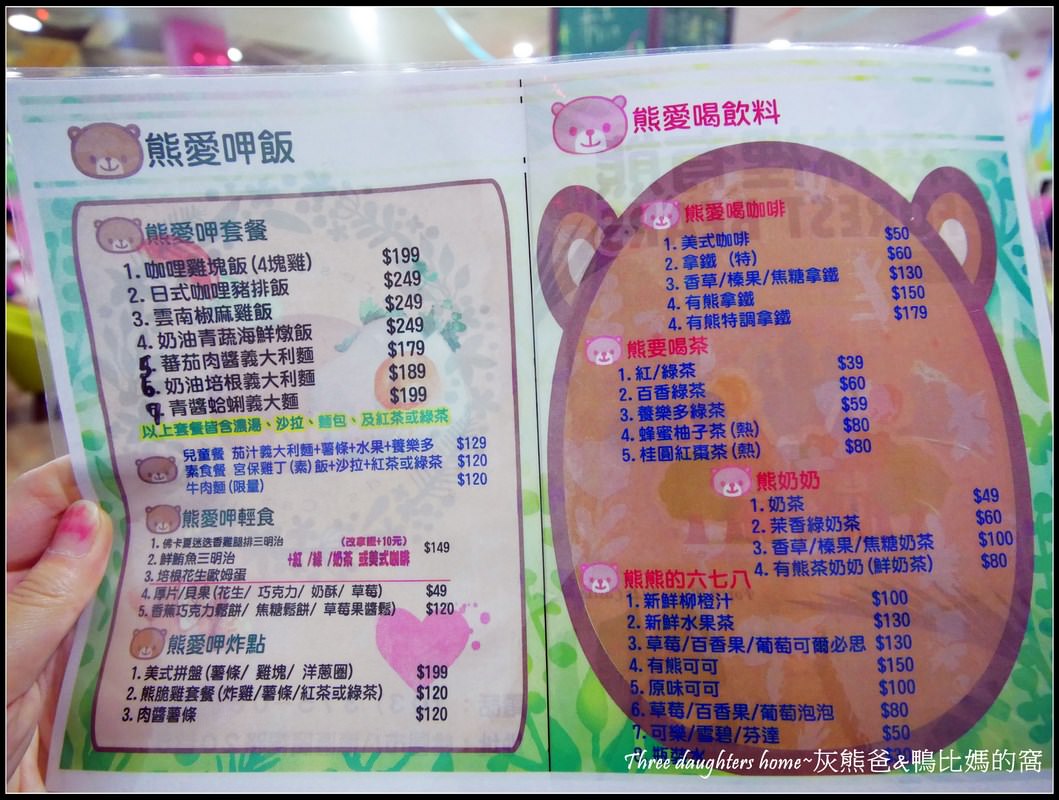 熊愛呷飯
熊愛呷套餐
1. 咖哩雞塊飯(4塊雞) $199
2. 日式咖哩豬排飯 $249
3. 雲南椒麻雞飯 $249
4. 奶油青蔬海鮮燉飯 $249
5. 蕃茄肉醬義大利麵 $179
6. 奶油培根義大利麵 $189
7. 青醬蛤蜊義大麵 $199
以上套餐皆含濃湯、沙拉、麵包、及紅茶或綠茶
兒童餐 茄汁義大利麵+薯條+水果+養樂多 $129
素食餐 宮保雞丁(素)飯+沙拉+紅茶或綠茶 $120
牛肉麵(限量) $120
熊愛呷輕食
1. 佛卡夏迷迭香雞腿排三明治 (改拿鐵+10元)
2. 鮮鮪魚三明治 +紅/綠/奶茶 或美式咖啡 $149
3. 培根花生歐姆蛋
4. 厚片/貝果(花生/ 巧克力/ 奶酥/ 草莓) $49
5. 香蕉巧克力鬆餅/ 焦糖鬆餅/ 草莓果醬鬆) $120
熊愛呷炸點
1. 美式拼盤(薯條/ 雞塊/ 洋蔥圈) $199
2. 熊脆雞套餐(炸雞/薯條/紅茶或綠茶) $120
3. 肉醬薯條 $120
熊愛喝飲料
熊愛喝咖啡
1. 美式咖啡 $50
2. 拿鐵 (特) $60
3. 香草/榛果/焦糖拿鐵 $130
4. 有熊拿鐵 $150
4. 有熊特調拿鐵 $179
熊要喝茶
1. 紅/綠茶 $39
2. 百香綠茶 $60
3. 養樂多綠茶 $59
4. 蜂蜜柚子茶(熱) $80
5. 桂圓紅棗茶(熱) $80
熊奶奶
1. 奶茶 $49
2. 茉香綠奶茶 $60
3. 香草/榛果/焦糖奶茶 $100
4. 有熊茶奶奶(鮮奶茶) $80
熊熊的六七八
1. 新鮮柳橙汁 $100
2. 新鮮水果茶 $130
3. 草莓/百香果/葡萄可爾必思 $130
4. 有熊可可 $150
5. 原味可可 $100
6. 草莓/百香果/葡萄泡泡 $80
7. 可樂/雪碧/芬達 $50
Three daughters home~灰熊爸&鴨比媽的窩